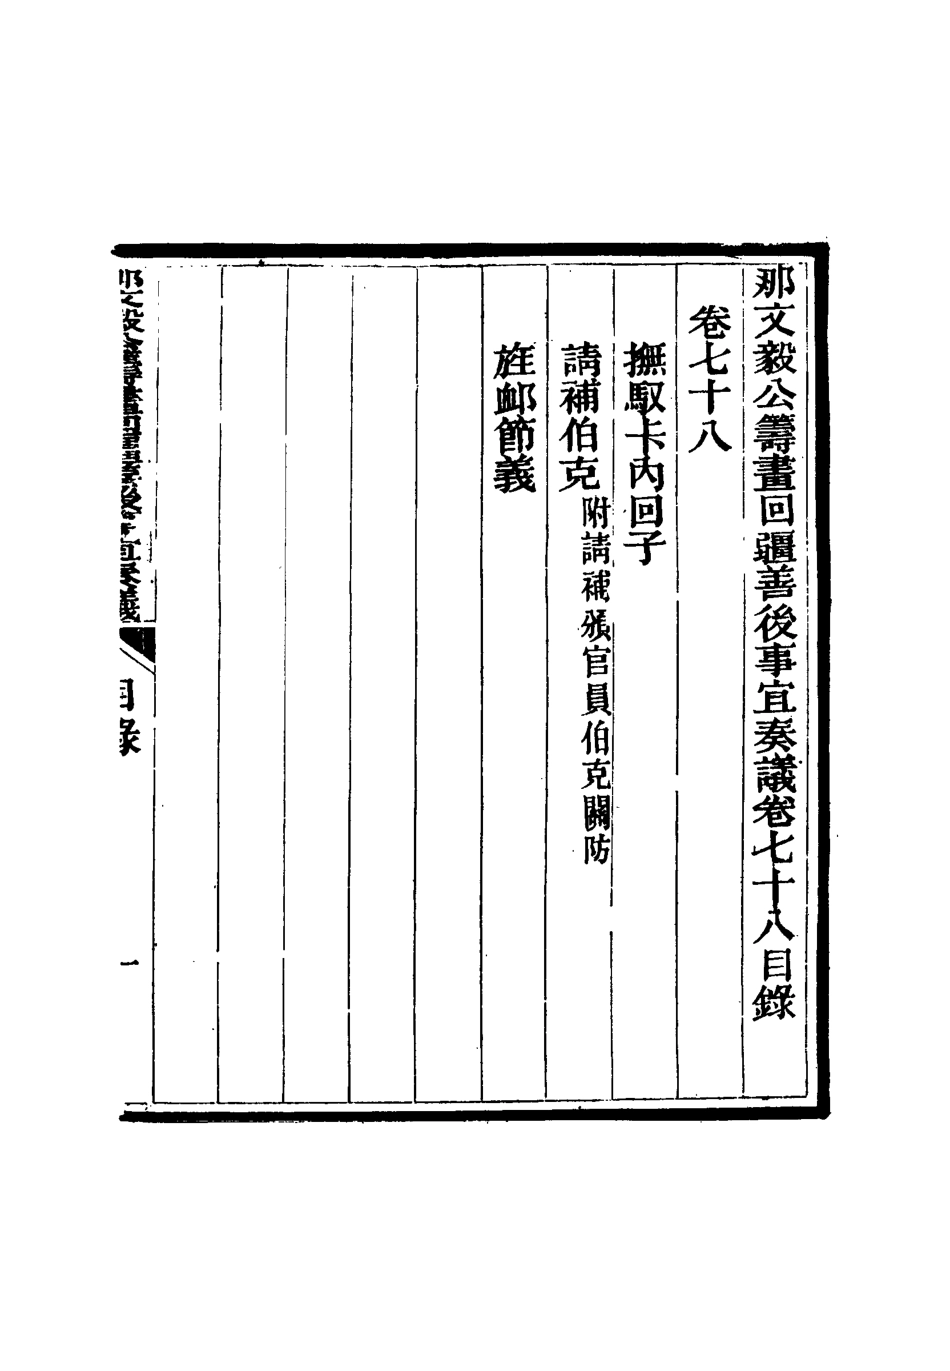 那文毅公籌畫回疆善後事宜奏議卷七十八目錄
卷七十八
撫馭卡內回子
請補伯克附請補頒官員伯克關防
旌卹節義
那文毅公籌畫回疆善後事宜奏議 目錄 一